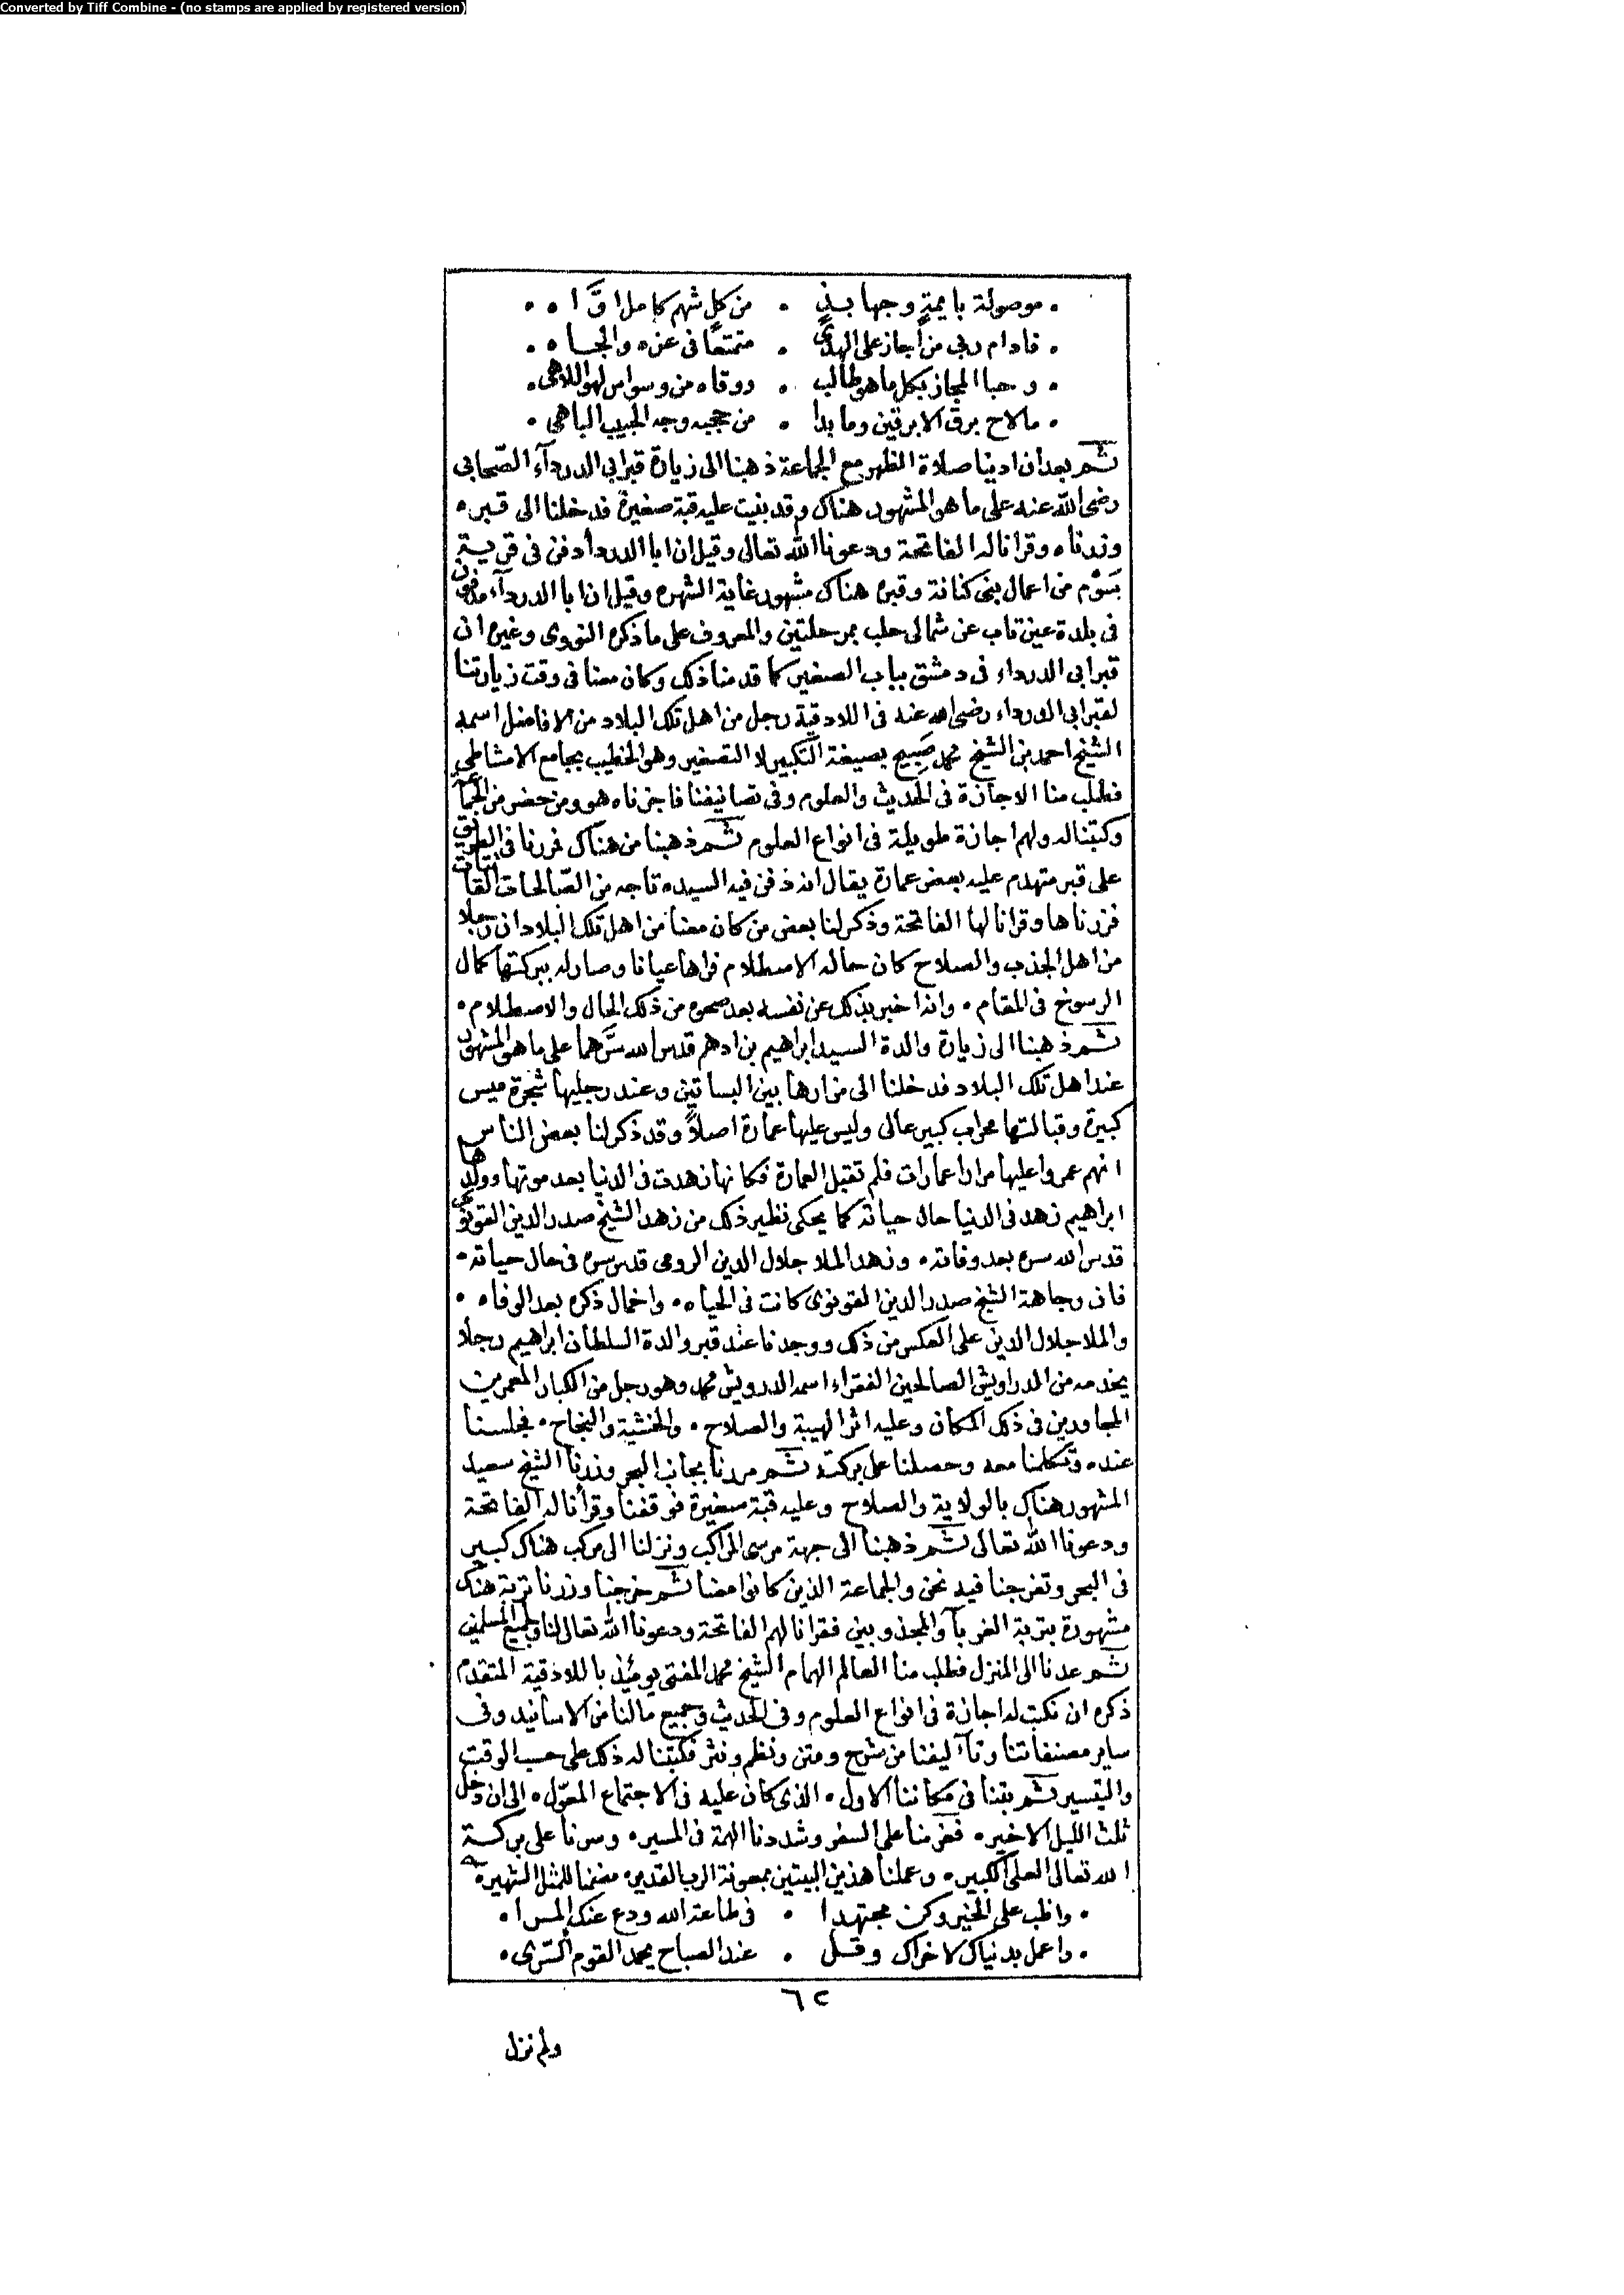 Converted by Tiff Combine - (no stamps are applied by registered version)
موصولة بايمةٍ وجهابذٍ • من كل شهم كامل اوّاه •
فادام ربي من أجاز على الهدى • متمتعًا في عزه والجاه •
وحبا المجاز بكل ما هو طالب • ووقاه من وسواس لهو اللاهي •
مالاح برق الابرقين وما بدا • من حجبه وجه الحبيب الباهي •
ثم بعد ان ادينا صلاة الظهر مع الجماعة ذهبنا الى زيارة قبر ابي الدردآء الصّحابي
رضي الله عنه على ما هو المشهور هناك وقد بنيت عليه قبة صغيرة فدخلنا الى قبره
وزرناه وقرانا له الفاتحة ودعونا الله تعالى وقيل ان ابا الدردأ دفن في قرية
بسوم من اعمال بني كنانة وقبره هناك مشهور غاية الشهره وقيل ان ابا الدردآء مدفون
في بلدة عين تاب عن شمالي حلب بمرحلتين والمعروف على ما ذكره النووي وغيره ان
قبر ابي الدرداء في دمشق بباب الصغير كما قدمنا ذلك وكان معنا في وقت زيارتنا
لقبر ابي الدرداء رضي الله عنه في اللادقية رجل من اهل تلك البلاد من الافاضل اسمه
الشيخ احمد بن الشيخ محمد صَبِيح بصيغة التكبير لا التصغير وهو الخطيب بجامع الامشاطي
فطلب منا الاجازة في الحديث والعلوم وفي تصانيفنا فاجزناه هو ومن حضر من الجماعة
وكتبنا له ولهم اجازة طويلة في انواع العلوم ثم ذهبنا من هناك فمررنا في الطريق
على قبر متهدم عليه بعض عمارة يقال انه دفن فيه السيده تاجه من الصّالحات القانتات
فزرناها وقرانا لها الفاتحة وذكر لنا بعض من كان معنا من اهل تلك البلاد ان رجلا
من اهل الجذب والصلاح كان حاله الاصطلام فراها عيانا وصار له ببركتها كمال
الرسوخ في المقام • وانه اخبر بذلك عن نفسه بعد صحوه من ذلك الحال والاصطلام •
ثم ذهبنا الى زيارة والدة السيد ابراهيم بن ادهم قدس الله سّرهما على ما هو المشهور
عند اهل تلك البلاد فدخلنا الى مزارها بين البساتين وعند رجليها شجرة ميس
كبيرة وقبالتها محراب كبير عالي وليس عليها عمارة اصلاً وقد ذكر لنا بعض الناس
انهم عمروا عليها مرارا عمارات فلم تقبل العمارة فكانها زهدت في الدنيا بعد موتها وولدها
ابراهيم زهد في الدنيا حال حياته كما يحكى نظير ذلك من زهد الشيخ صدر الدين القونوي
قدس الله سره بعد وفاته • وزهد الملا جلال الدين الرومي قدس سره في حال حياته •
فان وجاهة الشيخ صدر الدين القونوي كانت في الحياه • واخمال ذكره بعد الوفاه •
والملا جلال الدين على العكس من ذلك ووجدنا عند قبر والدة السلطان ابراهيم رجلا
يخدمه من الدراويش الصالحين الفقراء اسمه الدرويش محمد وهو رجل من الكبار المعمرين
المجاورين في ذلك المكان وعليه اثر الهيبة والصلاح • والخشية والنجاح • فجلسنا
عنده وتكلمنا معه وحصلنا على بركته ثم مررنا بجانب البحر وزرنا الشيخ سعيد
المشهور هناك بالولاية والصلاح وعليه قبة صغيرة فوقفنا وقرأنا له الفاتحة
ودعونا الله تعالى ثم ذهبنا الى جهة مرسى المراكب ونزلنا الى مركب هناك كبير
في البحر وتفرجنا فيه نحن والجماعة الذين كانوا معنا ثم خرجنا وزرنا تربة هناك
مشهورة بتربة الغربآ والمجذوبين فقرانا لهم الفاتحة ودعونا الله تعالى لنا ولجميع المسلمين
ثم عدنا الى المنزل فطلب منا العالم الهمام الشيخ محمد المفتي يومئذ باللاذقية المتقدم
ذكره ان نكتب له اجازة في انواع العلوم وفي الحديث وجميع مالنا من الاسانيد وفي
ساير مصنفاتنا وتآليفنا من شرح ومتن ونظم ونثر فكتبنا له ذلك على حسب الوقت
والتيسير ثم بتنا في مكاننا الاول • الذي كان عليه في الاجتماع المعوّل • الى ان دخل
ثلث الليل الاخير • فعزمنا على السفر وشددنا الهمة في المسير • وسرنا على بركة
الله تعالى العلي الكبير • وعملنا هذين البيتين بمعونة الرب القدير • مضمنا للمثل الشهير
• واظب على الخير وكن مجتهدا • في طاعة الله ودع عنك المرا •
• واعمل بدنياك لاخراك وقل • عند الصباح يحمد القوم السّرى •
٦٢
ولم نزل